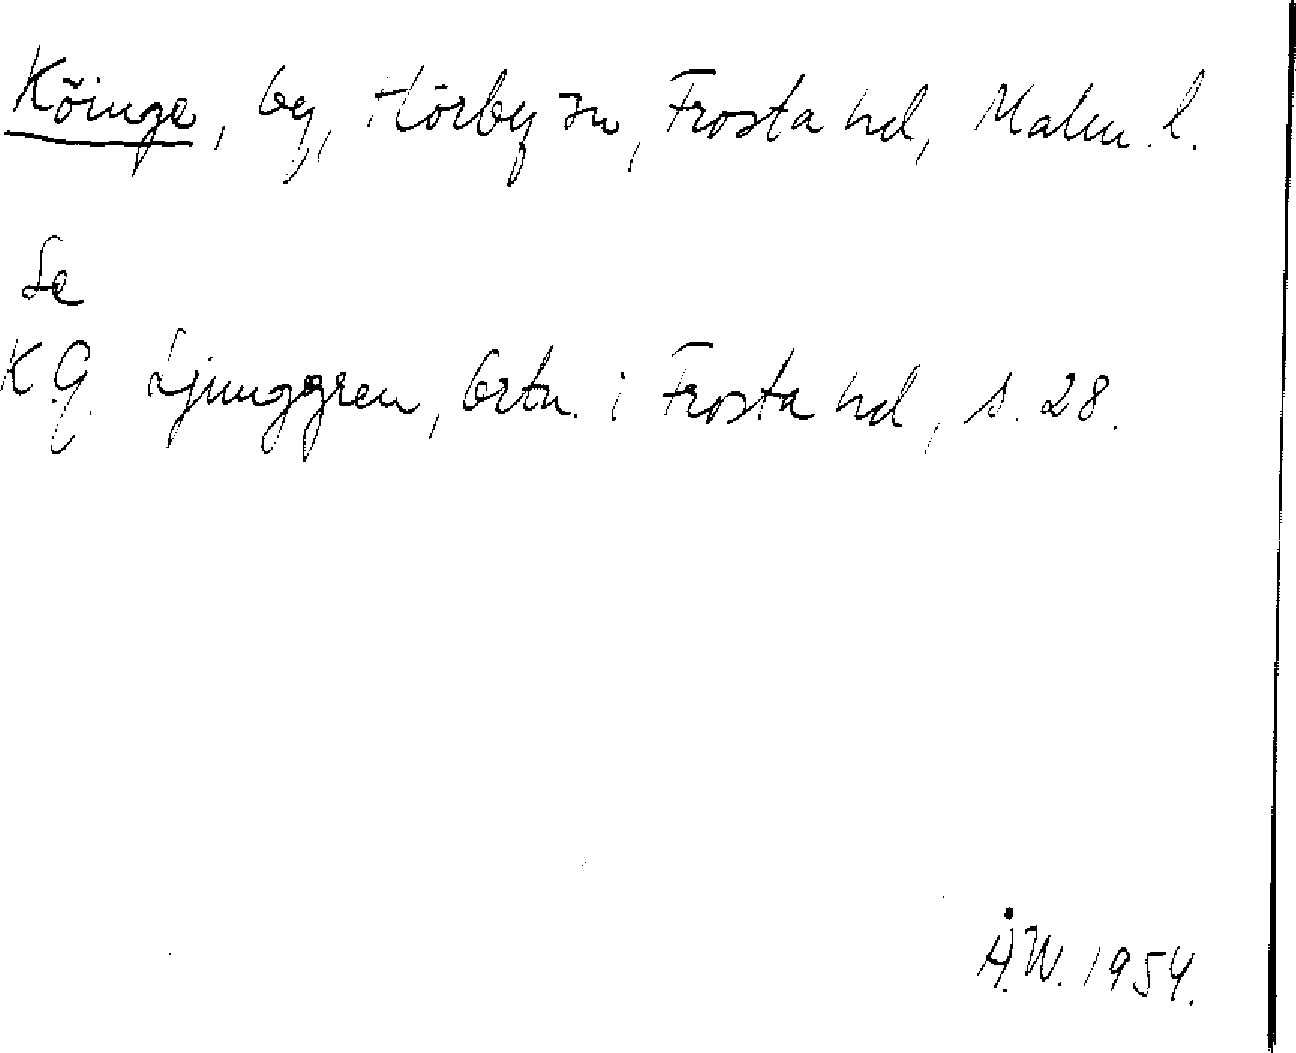 Köinge, by, Hörby sn, Frosta hd, Malm. l.
Se
K.G. Ljunggren, Ortn. i Frosta hd, s. 28.
Å.W. 1954.